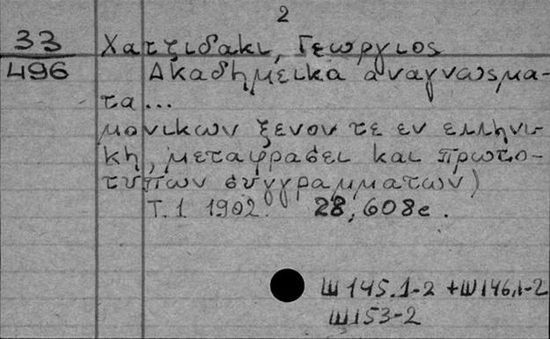 2
33 Χατζιδακι, Γεωργιος
496 Ακαδημεικα αναγνωσμα-
τα...
μονικων ξενον τε εν ελληνι-
κη, μεταφρασει και πρωτο-
τυπων συγγραμματων)
Τ.1 1902. 28,608е.
Ш145.1-2 +Ш146,1-2
Ш153-2